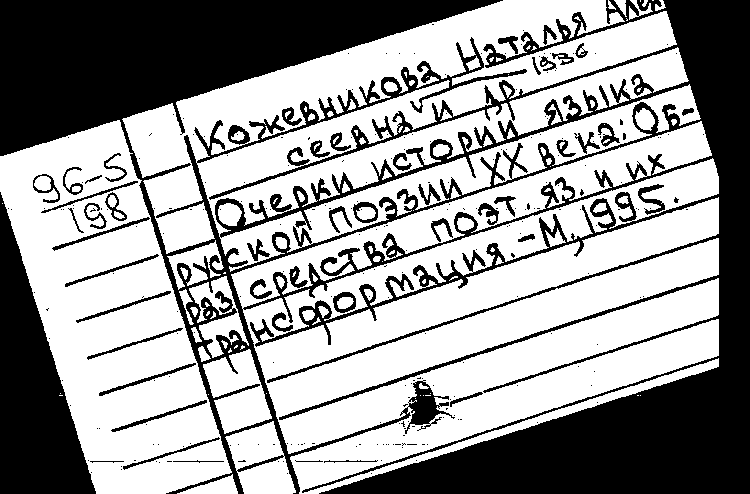 96-5
198
Кожевникова, Наталья Алек
сеевна и др. 1936
Очерки истории языка
русской поэзии XX века: Об-
раз. средства поэт. яз. и их
трансформация. - М., 1995.